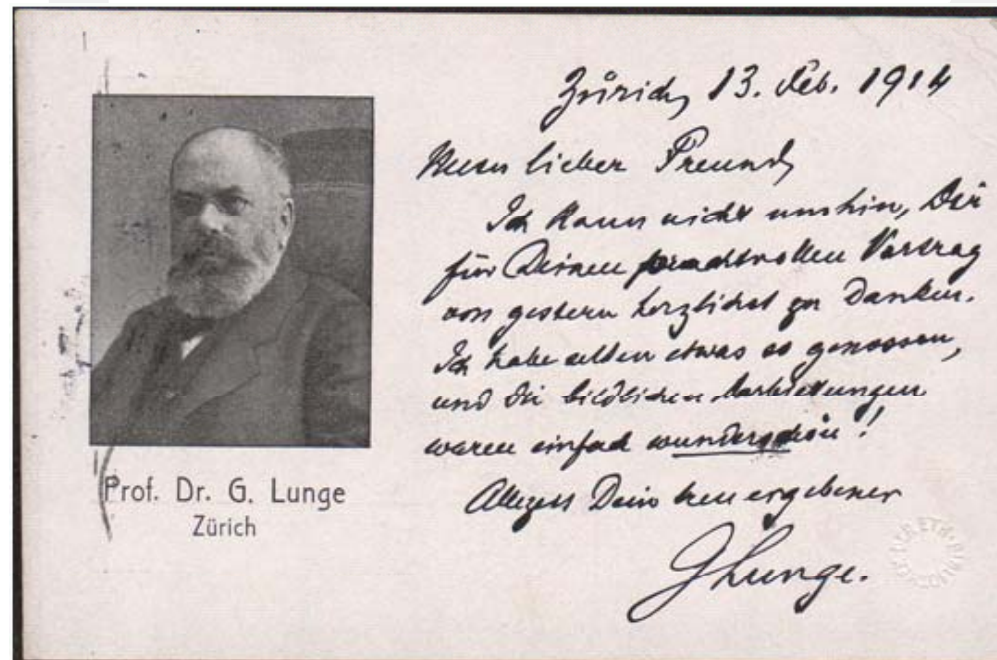 Zürich, 13. Feb. 1914
Mein lieber Freund,
Ich kann nicht umhin, Dir
für Deinen prachtvollen Vortrag
von gestern herzlichst zu Danken.
Ich habe selten etwas so genossen,
und die bildlichen Darbietungen
waren einfach wunderschön!
Allezeit Dein treu ergebener
GLunge.
Prof. Dr. G. Lunge
Zürich